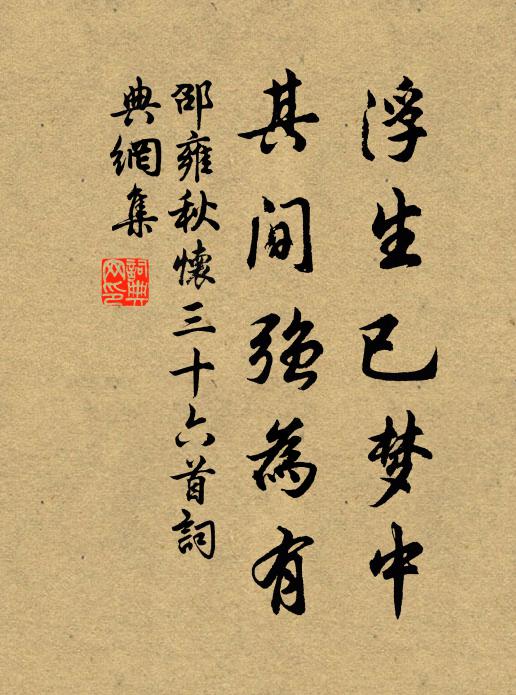 浮生已梦中
其间强為有
邵雍秋懷三十六首詞
典網集
詞典
网印